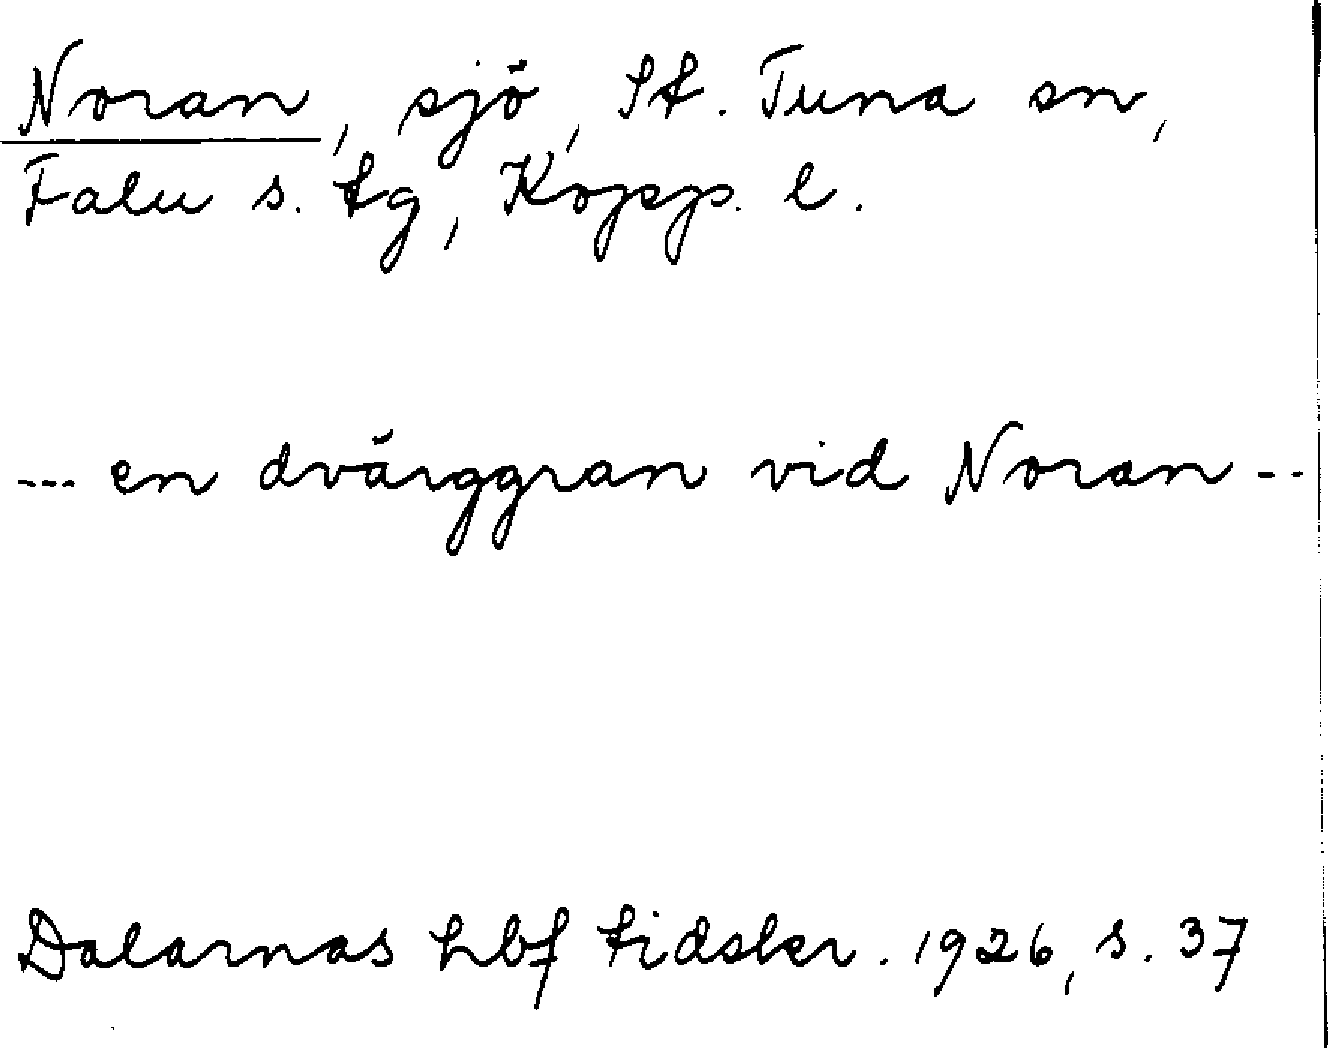 Noran, sjö, St. Tuna sn,
Falu s. tg, Kopp. l.
--- en dvärggran vid Noran --
Dalarnas hbf tidskr. 1926, s. 37